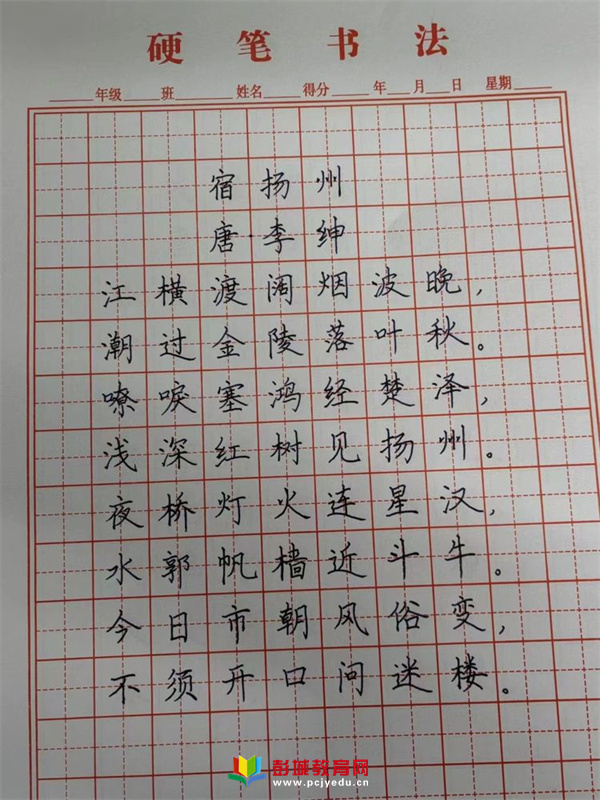 硬笔书法
年级 班 姓名 得分 年 月 日 星期
宿扬州
唐·李绅
江横渡阔烟波晚，
潮过金陵落叶秋。
嘹唳塞鸿经楚泽，
浅深红树见扬州。
夜桥灯火连星汉，
水郭帆樯近斗牛。
今日市朝风俗变，
不须开口问迷楼。
彭城教育网
www.pcjyedu.cn